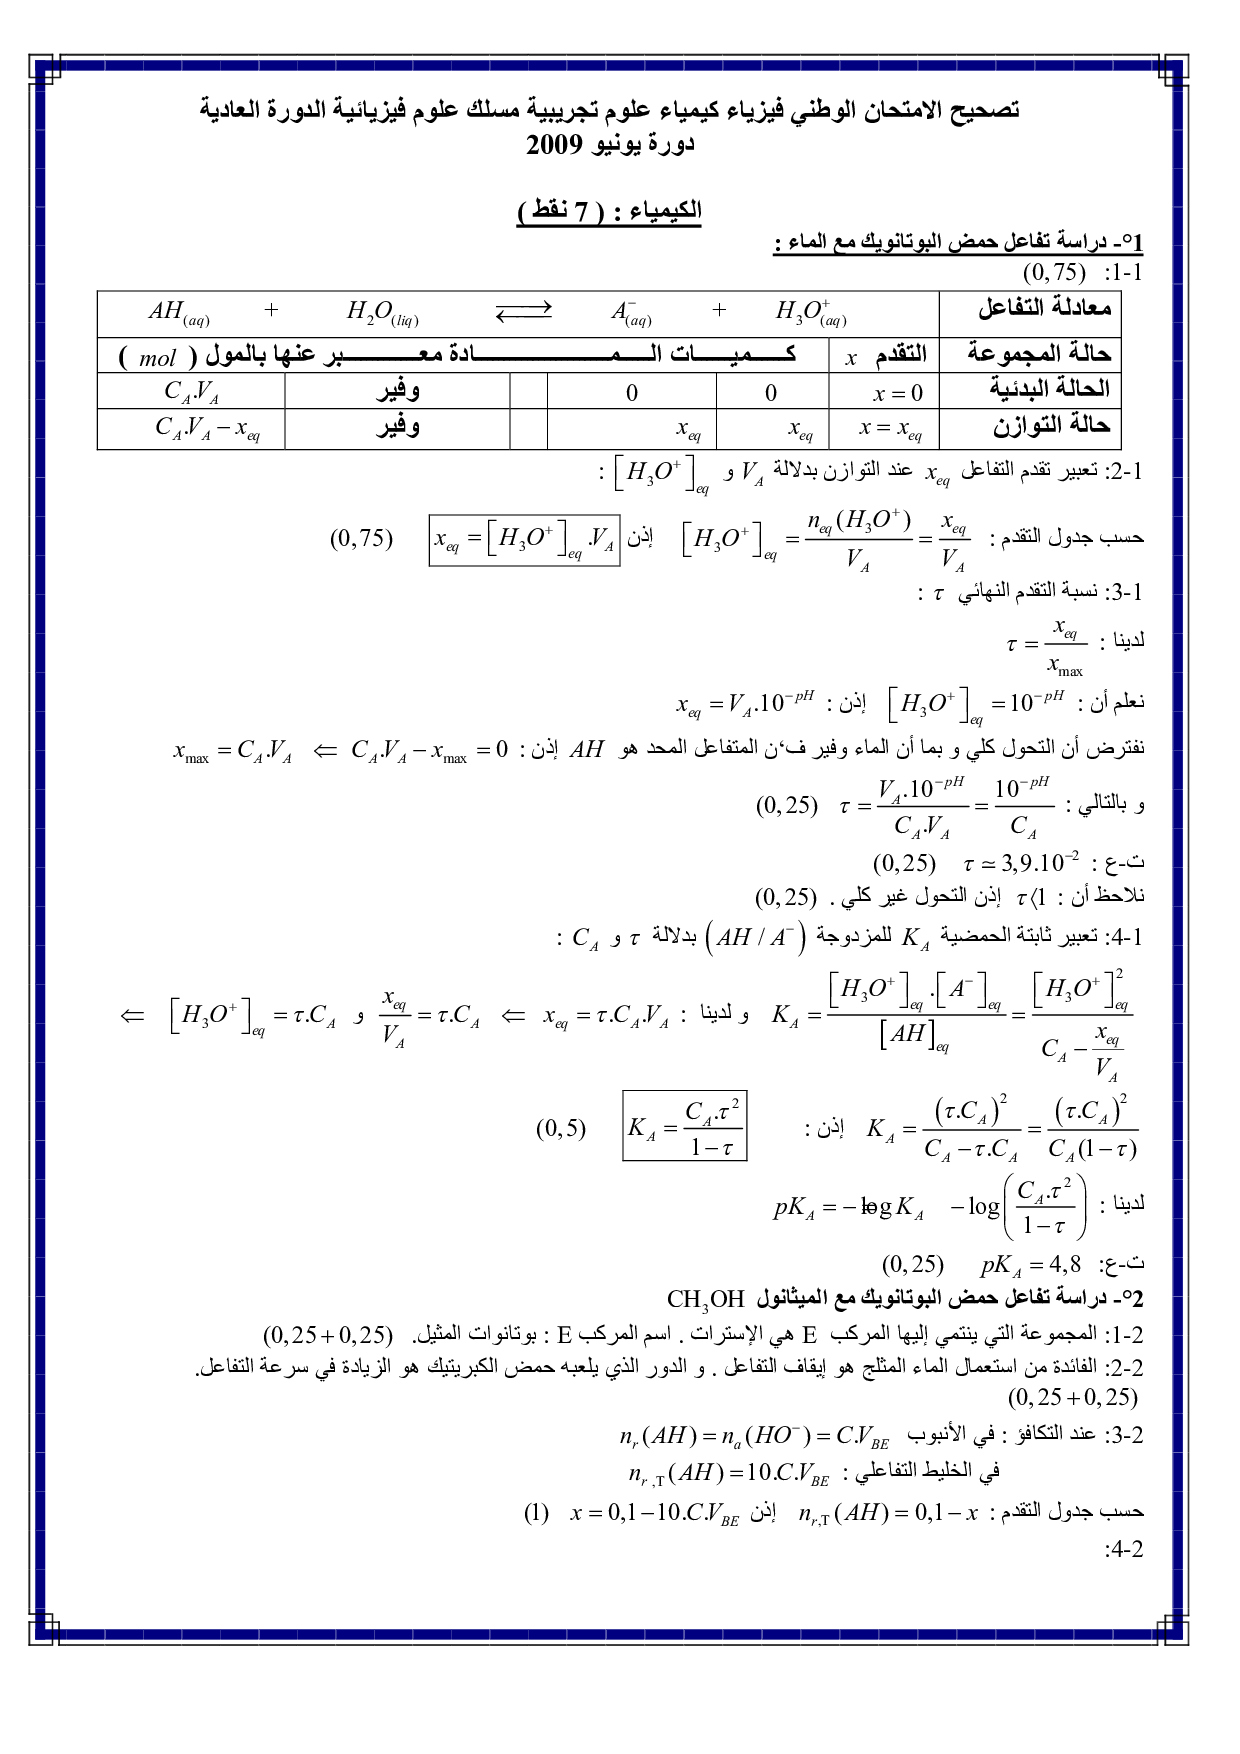 تصحيح الامتحان الوطني فيزياء كيمياء علوم تجريبية مسلك علوم فيزيائية الدورة العادية
دورة يونيو 2009
الكيمياء : ( 7 نقط )
1°- دراسة تفاعل حمض البوتانويك مع الماء :
1-1: (0,75)
معادلة التفاعل AH(aq) + H₂O(liq) ⇄ A⁻(aq) + H₃O⁺(aq)
حالة المجموعة التقدم x كـــميـــات الـــمـــــــادة معـــــــبر عنها بالمول ( mol )
الحالة البدئية x = 0 0 0 وفير C_A.V_A
حالة التوازن x = x_eq x_eq x_eq وفير C_A.V_A − x_eq
2-1: تعبير تقدم التفاعل x_eq عند التوازن بدلالة V_A و [H₃O⁺]_eq :
حسب جدول التقدم : [H₃O⁺]_eq = n_eq(H₃O⁺)/V_A = x_eq/V_A إذن x_eq = [H₃O⁺]_eq .V_A (0,75)
3-1: نسبة التقدم النهائي τ :
لدينا : τ = x_eq/x_max
نعلم أن : [H₃O⁺]_eq = 10^(−pH) إذن : x_eq = V_A.10^(−pH)
نفترض أن التحول كلي و بما أن الماء وفير ف‘ن المتفاعل المحد هو AH إذن : C_A.V_A − x_max = 0 ⇐ x_max = C_A.V_A
و بالتالي : τ = V_A.10^(−pH)/C_A.V_A = 10^(−pH)/C_A (0,25)
ت-ع : τ ≃ 3,9.10⁻² (0,25)
نلاحظ أن : τ⟨1 إذن التحول غير كلي . (0,25)
4-1: تعبير ثابتة الحمضية K_A للمزدوجة (AH / A⁻) بدلالة τ و C_A :
K_A = [H₃O⁺]_eq .[A⁻]_eq/[AH]_eq = [H₃O⁺]²_eq/(C_A − x_eq/V_A) و لدينا : x_eq = τ.C_A.V_A ⇐ x_eq/V_A = τ.C_A و [H₃O⁺]_eq = τ.C_A ⇐
K_A = (τ.C_A)²/(C_A − τ.C_A) = (τ.C_A)²/(C_A(1−τ)) إذن : K_A = C_A.τ²/(1−τ) (0,5)
لدينا : pK_A = −log K_A = −log(C_A.τ²/(1−τ))
ت-ع: pK_A = 4,8 (0,25)
2°- دراسة تفاعل حمض البوتانويك مع الميثانول CH₃OH
1-2: المجموعة التي ينتمي إليها المركب E هي الإسترات . اسم المركب E : بوتانوات المثيل. (0,25+0,25)
2-2: الفائدة من استعمال الماء المثلج هو إيقاف التفاعل . و الدور الذي يلعبه حمض الكبريتيك هو الزيادة في سرعة التفاعل.
(0,25+0,25)
3-2: عند التكافؤ : في الأنبوب n_r(AH) = n_a(HO⁻) = C.V_BE
في الخليط التفاعلي : n_r,T(AH) = 10.C.V_BE
حسب جدول التقدم : n_r,T(AH) = 0,1 − x إذن x = 0,1−10.C.V_BE (1)
4-2: